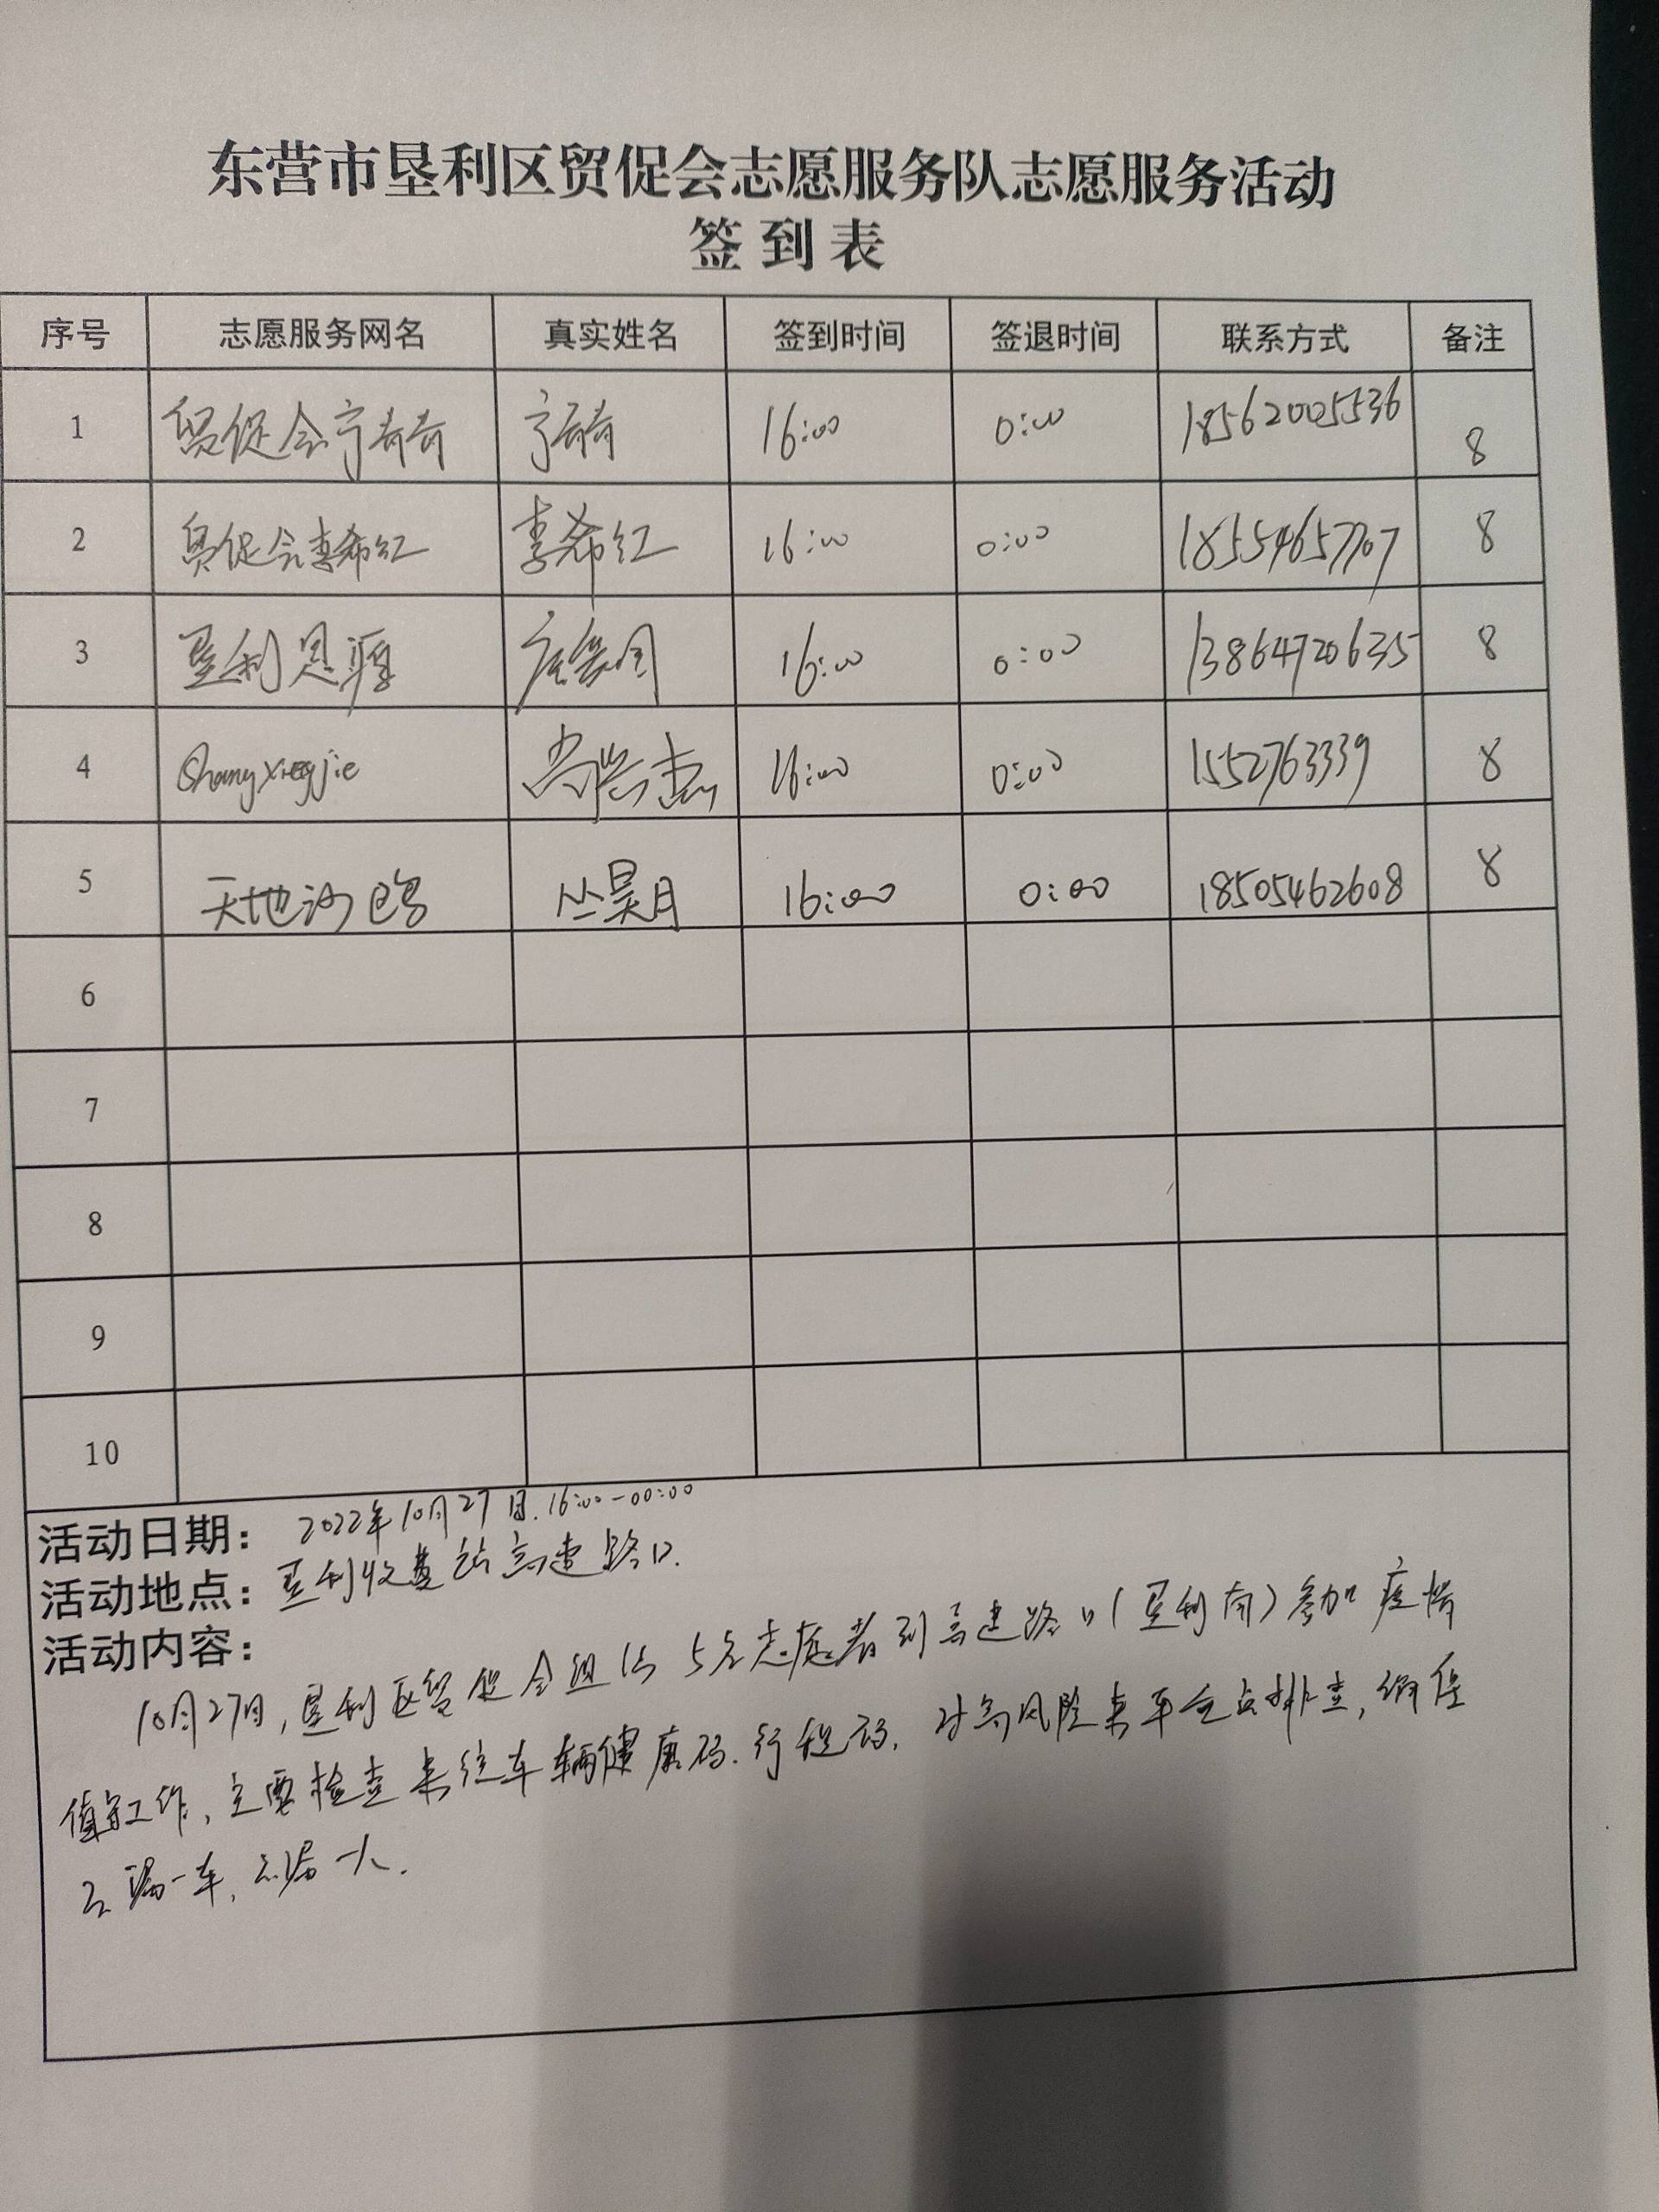 东营市垦利区贸促会志愿服务队志愿服务活动
签到表
序号 志愿服务网名 真实姓名 签到时间 签退时间 联系方式 备注
1 贸促会宁奇奇 宁奇奇 16:00 0:00 18562005536 8
2 贸促会李希红 李希红 16:00 0:00 18554657707 8
3 垦利 16:00 0:00 13864720635 8
4 Shangxingjie 尚兴杰 16:00 0:00 1552763339 8
5 天地沙鸥 丛昊月 16:00 0:00 18505462608 8
6
7
8
9
10
活动日期： 2022年10月27日.16:00-00:00
活动地点：垦利收费站高速路口.
活动内容：
10月27日,垦利区贸促会组织5名志愿者到高速路口(垦利南)参加疫情
值守工作,主要检查来往车辆健康码.行程码.对高风险来车重点排查,确保
不漏一车,不漏一人.